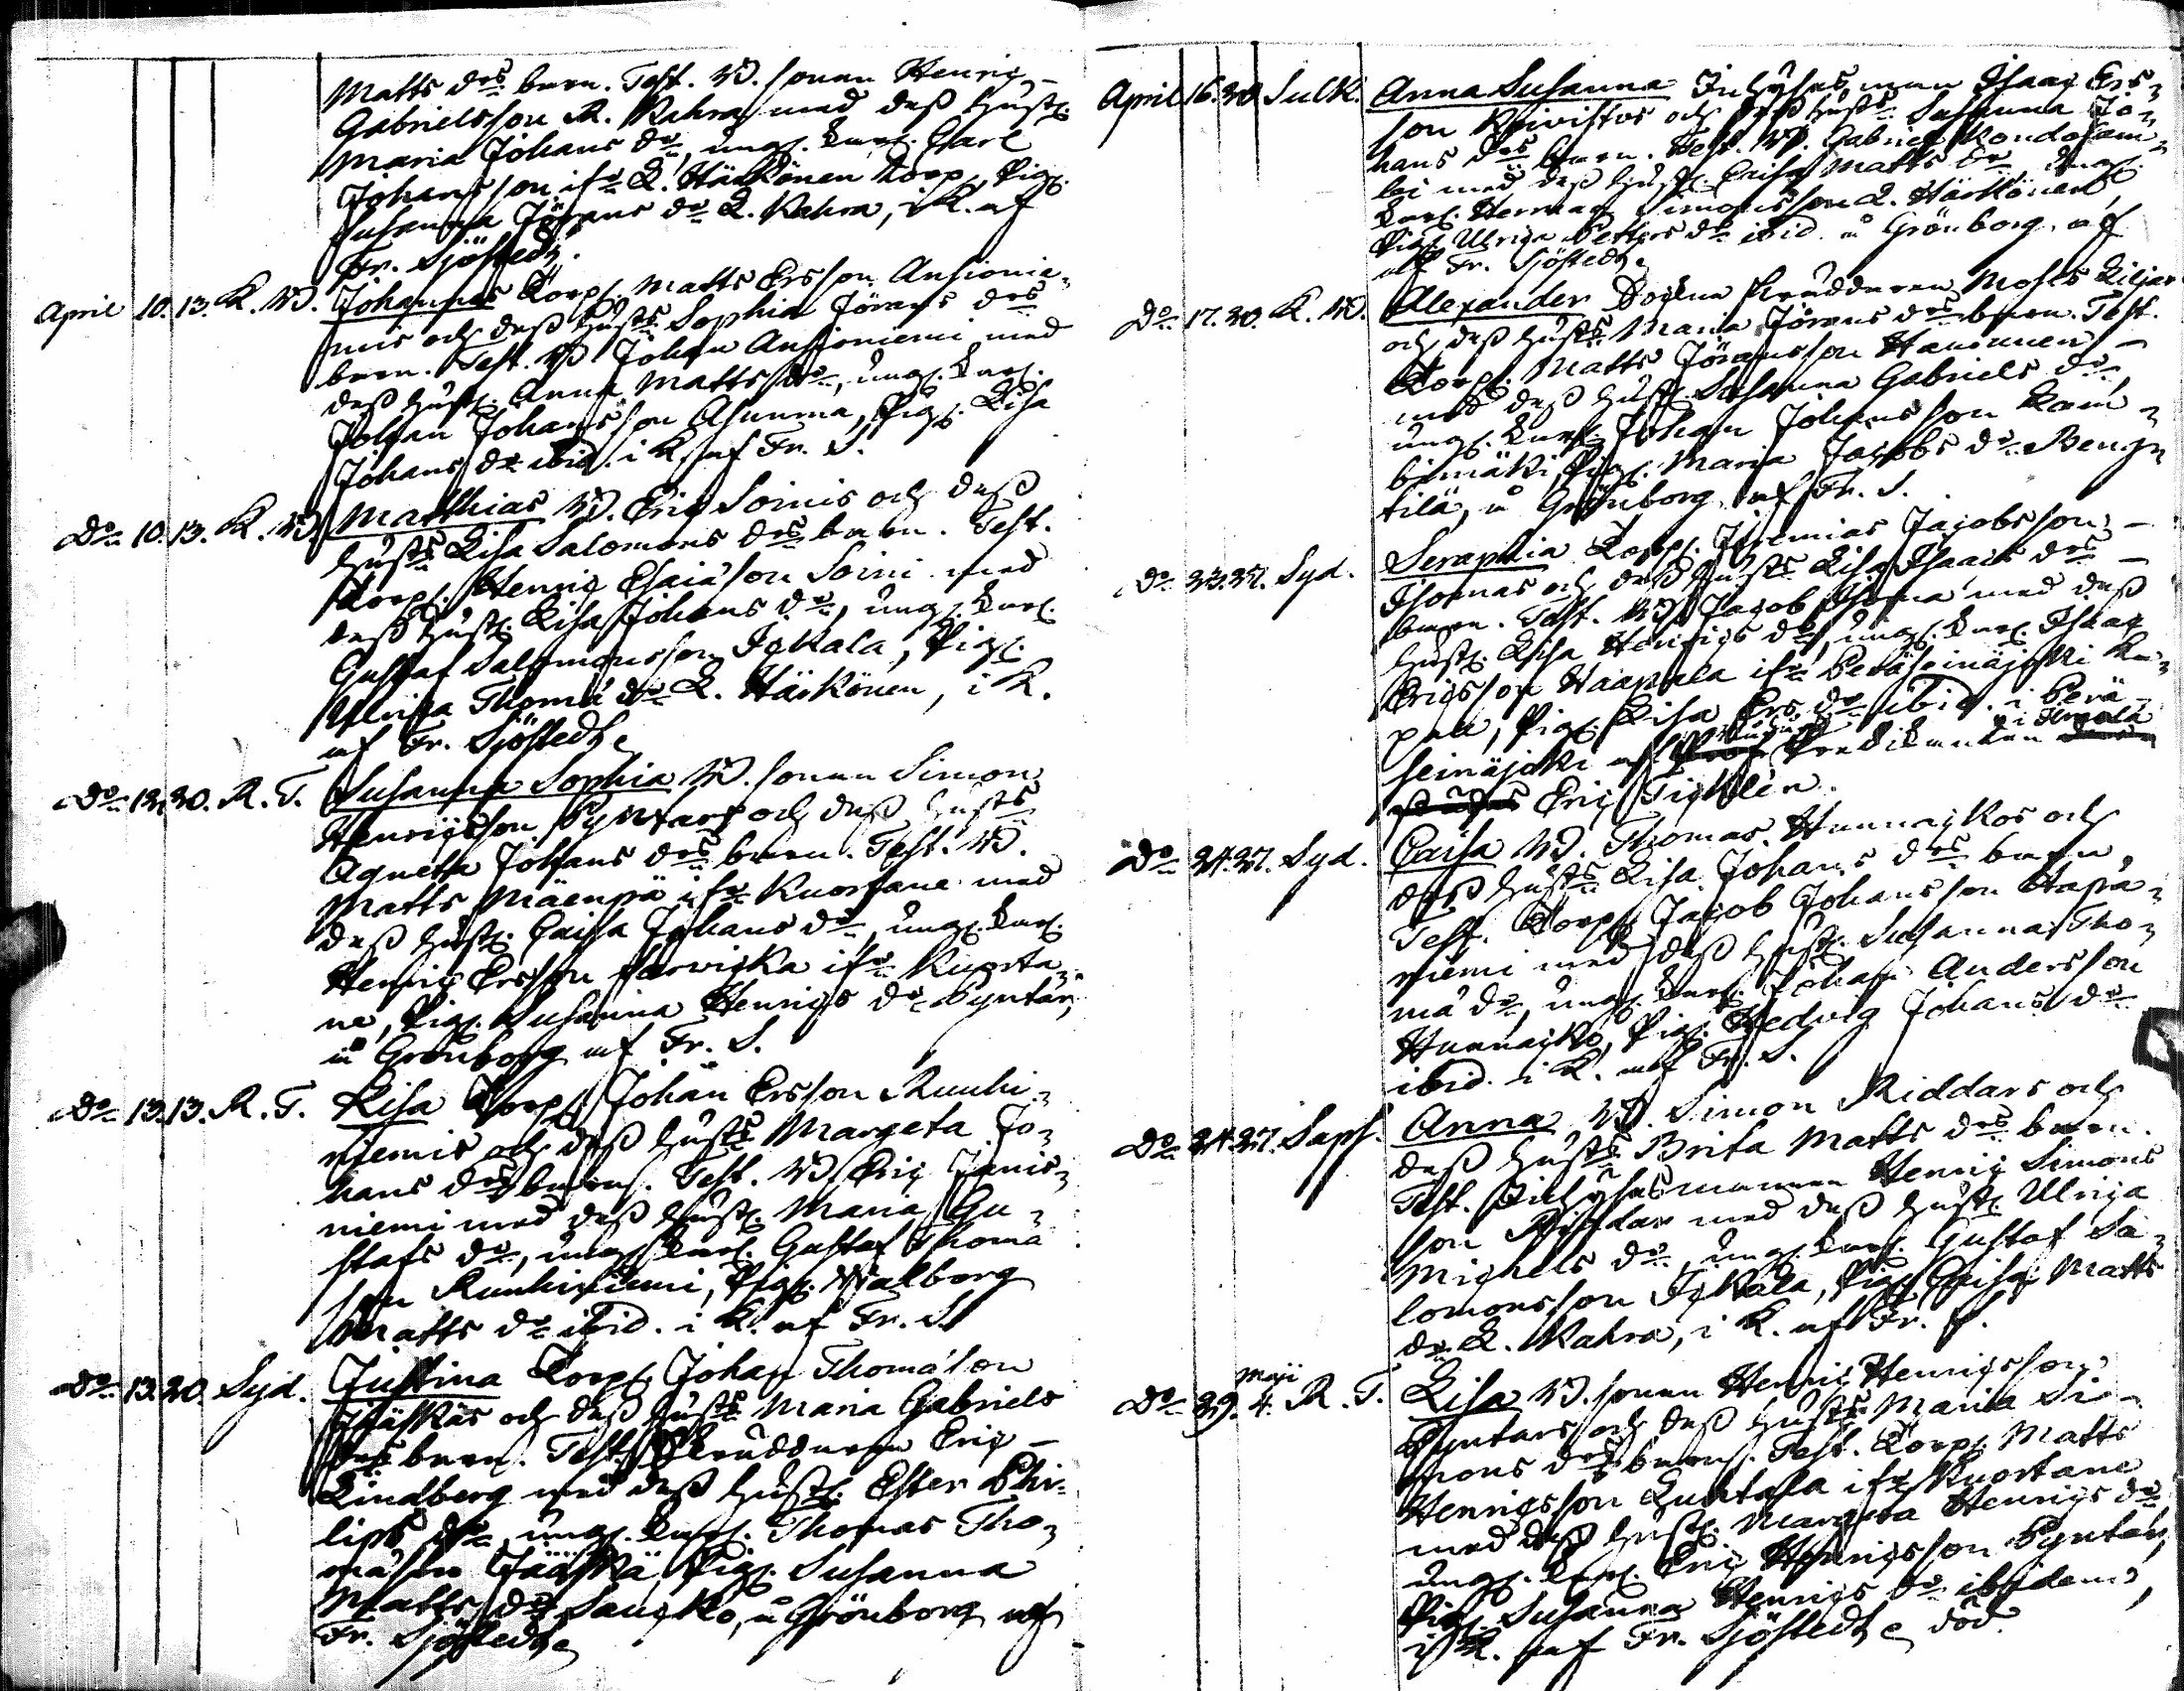 Matts drs barn. Test. Bd. sonen Henric
Gabrielsson R. Rahra med dess hust.
Maria Johans dr, ung. karl. Carl
Johansson ifr. L. Härkönen Torp, Pig.
Susanna Jörans dr L. Rahra, i K. af
Fr. Sjöstedt.
April 10. 13. K. Bd. Johannes Torp. Matts Ersson Ansionie-
mis och dess hustrs Sophia Jörans drs
barn. Test. Bd Johan Ansioniemi med
dess hust. Anna Matts dr, ung. karl.
Johan Johansson Asunma, Pig. Lisa
Johans dr ibid. i K. af Fr. S.
Do 10. 13. K. Bd. Matthias Bd. Eric Soinis och dess
hustrs Lisa Salomons drs barn. Test.
Torp. Henric Esaiæson Soini med
dess hust. Lisa Johans dr, ung. karl.
Gustaf Salomonsson Jokala, Pig.
Ulrica Thomæ dr L. Härkönen, i K.
af Fr. Sjöstedt
Do 12. 20. R. T. Susanna Sophia Bd. sonen Simon
Henricsson Pyntars och dess hustrs
Agneta Johans drs barn. Test. Bd.
Matts Mäenpä ifr Kuortane med
dess hust. Caisa Johans dr, ung. karl.
Henric Ersson ifr Kuorta-
ne, Pig. Susanna Henrics dr Pyntär,
å Grönborg af Fr. S.
Do 13. 13. R. T. Lisa Torp. Johan Ersson Ruuhi-
niemis och dess hustrs Margeta Jo-
hans drs barn. Test. Bd Eric
niemi med dess hust. Maria Gu-
stafs dr, ung. karl. Gustaf Thomæ
son Ruuhiniemi, Pig. Walborg
Matts dr ibid. i K. af Fr. S.
Do 13. 20. Syd. Justina Torp. Johan Thomæson
Jääskäs och dess hustrs Maria Gabriels
drs barn. Test. Skräddaren Eric
Lindberg med dess hust. Ester Phi-
lips dr, ung. karl. Thomas Tho-
mæson Jääskä, Pig. Susanna
Matts dr Saucko, å Grönborg af
Fr. Sjöstedt
April 16. 20. Sulk. Anna Susanna Inhyses man Isaac Ers-
son Koivistos och dess hustrs Susanna Jo-
hans drs barn. Test. Bd. Gabriel Kondolam-
bi med dess hust. Caisa Matts dr ung.
karl. Herman Simonsson L. Härkönen,
Pig. Ulrica Petters dr ibid. å Grönborg af
af Fr. Sjöstedt
Do 17. 20. K. Bd. Alexander Socken skräddaren Moses Liljas
och dess hustrs Maria Jörans drs barn. Test.
Torp. Matts Jöransson Hanunen
med dess hust. Susanna Gabriels dr,
ung. karl. Johan Johansson Lam-
bimäki, Pig. Maria Jacobs dr Beng-
tilä, å Grönborg af Fr. S.
Do 23. 27. Syd. Seraphia Torp. Jeremias Jacobsson
Isomas och dess hustrs Lisa Isaacs drs
barn. Test. Bd Jacob Isoma med dess
hust. Lisa Henrics dr, ung. karl. Isaac
Ericsson Haapala ifr Peräseinäjoki Ka-
pell, Pig. Lisa Ers dr ibid. i Perä-
seinäjoki af Predikanten i Ilmola
Eric Ticklén.
Do 24. 27. Syd. Caisa Bd. Thomas Hunnackos och
dess hustrs Lisa Johans drs barn,
Test. Torp. Jacob Johansson Hapa-
niemi med dess hust. Susanna Tho-
mæ dr, ung. karl. Johan Andersson
Hunnacko, Pig. Hedvig Johans dr
ibid. i K. af Fr. S.
Do 24. 27. Saps. Anna Bd. Simon Riddars och
dess hustrs Brita Matts drs barn.
Test. Inhyses mannen Henric Simons
son Riddar med dess hust. Ulrica
Michels dr, ung. karl. Gustaf Sa-
lomonsson Jokala, Pig. Caisa Matts
dr L. Rahra, i K. af Fr. S.
Maji
Do 29. 4. R. T. Lisa Bd. sonen Henric Henricsson
Pyntars och dess hustrs Maria Si-
mons drs barn. Test. Torp. Matts
Henricsson Luhtala ifr Kuortane
med dess hust. Margeta Henrics dr
ung. karl. Eric Henricsson Pyntär,
Pig. Susanna Henrics dr ibidem,
i K. af Fr. Sjöstedt död.